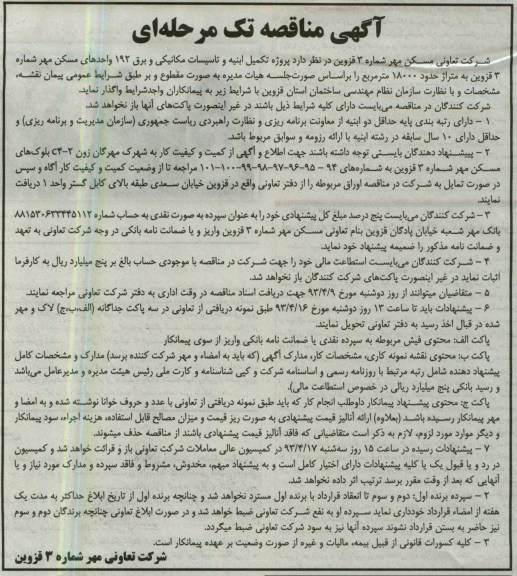 آگهی مناقصه تک مرحله‌ای
شرکت تعاونی مسکن مهر شماره ۳ قزوین در نظر دارد پروژه تکمیل ابنیه و تاسیسات مکانیکی و برق ۱۹۲ واحدهای مسکن مهر شماره
۳ قزوین به متراژ حدود ۱۸۰۰۰ مترمربع را براساس صورت‌جلسه هیات مدیره به صورت مقطوع و بر طبق شرایط عمومی پیمان نقشه،
مشخصات و با نظارت سازمان نظام مهندسی ساختمان استان قزوین با شرایط زیر به پیمانکاران واجدشرایط واگذار نماید.
شرکت کنندگان در مناقصه می‌بایست دارای کلیه شرایط ذیل باشند در غیر اینصورت پاکت‌های آنها باز نخواهد شد.
۱ - دارای رتبه بندی پایه حداقل دو ابنیه از معاونت برنامه ریزی و نظارت راهبردی ریاست جمهوری (سازمان مدیریت و برنامه ریزی) و
حداقل دارای ۱۰ سال سابقه در رشته ابنیه با ارائه رزومه و سوابق مربوط باشد.
۲ - پیشنهاد دهندگان بایستی توجه داشته باشند جهت اطلاع و آگهی از کمیت و کیفیت کار به شهرک مهرگان زون ۲-C۴ بلوک‌های
مسکن مهر شماره ۳ قزوین به شماره‌های ۹۴ - ۹۵-۹۶-۹۷-۹۸-۹۹-۱۰۰-۱۰۱ مراجعه تا از وضعیت کمیت و کیفیت کار آگاه و سپس
در صورت تمایل به شرکت در مناقصه اوراق مربوطه را از دفتر تعاونی واقع در قزوین خیابان سعدی طبقه بالای کابل گستر واحد ۱ دریافت
نمایند.
۳ - شرکت کنندگان می‌بایست پنج درصد مبلغ کل پیشنهادی خود را به عنوان سپرده به صورت نقدی به حساب شماره ۸۸۱۵۳۰۶۳۳۴۴۵۱۱۲
بانک مهر شعبه خیابان پادگان قزوین بنام تعاونی مسکن مهر شماره ۳ قزوین واریز و یا ضمانت نامه بانکی در وجه شرکت تعاونی به تعهد
و ضمانت نامه مذکور را ضمیمه پیشنهاد خود نماید.
۴ - شرکت کنندگان می‌بایست استطاعت مالی خود را جهت شرکت در مناقصه با موجودی حساب بالغ بر پنج میلیارد ریال به کارفرما
اثبات نماید در غیر اینصورت پاکت‌های شرکت کنندگان باز نخواهد شد.
۵ - متقاضیان میتوانند از روز دوشنبه مورخ ۹۳/۴/۹ جهت دریافت اسناد مناقصه در وقت اداری به دفتر شرکت تعاونی مراجعه نمایند.
۶ - پیشنهادات باید تا ساعت ۱۳ روز دوشنبه مورخ ۹۳/۴/۱۶ طبق نمونه دریافتی از تعاونی در سه پاکت جداگانه (الف،ب،ج) لاک و مهر
شده در قبال اخذ رسید به دفتر تعاونی تحویل نمایند.
پاکت الف: محتوی فیش مربوطه به سپرده نقدی یا ضمانت نامه بانکی واریز از سوی پیمانکار
پاکت ب: محتوی نقشه نمونه کاری، مشخصات کار، مدارک آگهی (که باید به امضاء و مهر شرکت کننده برسد) مدارک و مشخصات کامل
پیشنهاد دهنده شامل رتبه مرتبط با روزنامه رسمی و اساسنامه شرکت و کپی شناسنامه و کارت ملی رئیس هیئت مدیره و مدیرعامل می‌باشد
و رسید بانکی پنج میلیارد ریالی در خصوص استطاعت مالی).
پاکت ج: محتوی پیشنهاد پیمانکار داوطلب انجام کار که باید طبق نمونه دریافتی از تعاونی با عدد و حروف خوانا نوشته شده و به امضا و
مهر پیمانکار رسیده باشد (بعلاوه) ارائه آنالیز قیمت پیشنهادی به صورت ریز قیمت و میزان مصالح قابل استفاده، هزینه اجراء، سود پیمانکار
و دیگر موارد مورد لزوم، لازم به ذکر است متقاضیانی که فاقد آنالیز قیمت پیشنهادی باشند از مناقصه حذف میشوند.
۷ - پیشنهادات رسیده در ساعت ۱۵ روز سه‌شنبه ۹۳/۴/۱۷ در کمیسیون عالی معاملات شرکت تعاونی باز و قرائت خواهد شد و کمیسیون
در رد و یا قبول یک یا کلیه پیشنهادات دارای اختیار کامل است و به پیشنهاد مبهم، مخدوش، مشروط و فاقد سپرده و مدارک مورد نیاز و یا
آنهایی که بعد از وقت مقرر برسد ترتیب اثر داده نخواهد شد.
۲ - سپرده برنده اول: دوم و سوم تا انعقاد قرارداد با برنده اول مسترد نخواهد شد و چنانچه برنده اول از تاریخ ابلاغ حداکثر به مدت یک
هفته از امضاء قرارداد خودداری نماید سپرده او به نفع شرکت تعاونی ضبط خواهد شد و در صورت ابلاغ تعاونی چنانچه برندگان دوم و سوم
نیز حاضر به بستن قرارداد نشوند سپرده آنها نیز به سود شرکت تعاونی ضبط میگردد.
۳ - کلیه کسورات قانونی از قبیل بیمه، مالیات و غیره از صورت وضعیت بر عهده پیمانکار است.
شرکت تعاونی مهر شماره ۳ قزوین